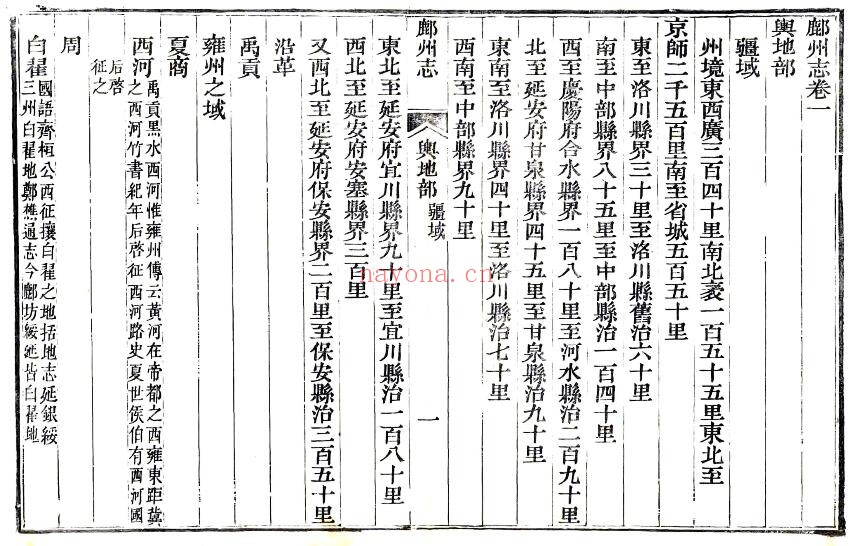 鄜州志卷一
輿地部
疆域
州境東西廣三百四十里南北袤一百五十五里東北至
京師二千五百里南至省城五百五十里
東至洛川縣界三十里至洛川縣舊治六十里
南至中部縣界八十五里至中部縣治一百四十里
西至慶陽府合水縣界一百八十里至河水縣治二百九十里
北至延安府甘泉縣界四十五里至甘泉縣治九十里
東南至洛川縣界四十里至洛川縣治七十里
西南至中部縣界九十里
鄜州志
輿地部 疆域
一
東北至延安府宜川縣界九十里至宜川縣治一百八十里
西北至延安府安塞縣界三百里
又西北至延安府保安縣界二百里至保安縣治三百五十里
沿革
禹貢
雍州之域
夏商
西河禹貢黑水西河惟雍州傳云黃河在帝都之西雍東距冀
之西河竹書紀年后啓征西河路史夏世侯伯有西河國
后啓
征之
周
白翟國語齊桓公西征攘白翟之地括地志延銀綏
三州白翟地鄭樵通志今鄜坊綏延皆白翟地
nayona.cn